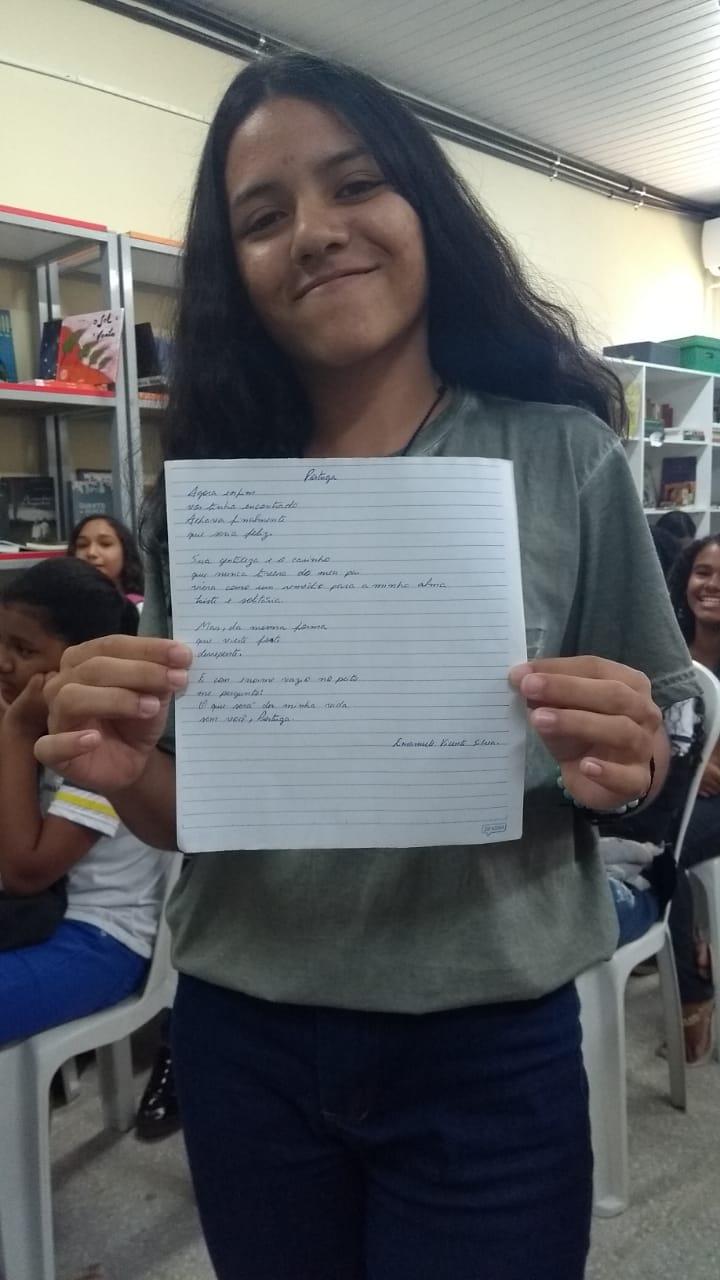 Sol
festa
Portuga
Agora enfim
vos tinha encontrado
Achava finalmente
que seria feliz.
Sua gentileza e o carinho
que nunca tivera do meu pai
viera como um remédio para a minha alma
triste e solitária.
Mas, da mesma forma
que vieste foste
derrepente.
E con enorme vazio no peito
me pergunto!
O que será da minha vida
sem você, Portuga.
Emanuele Vicente Silva.